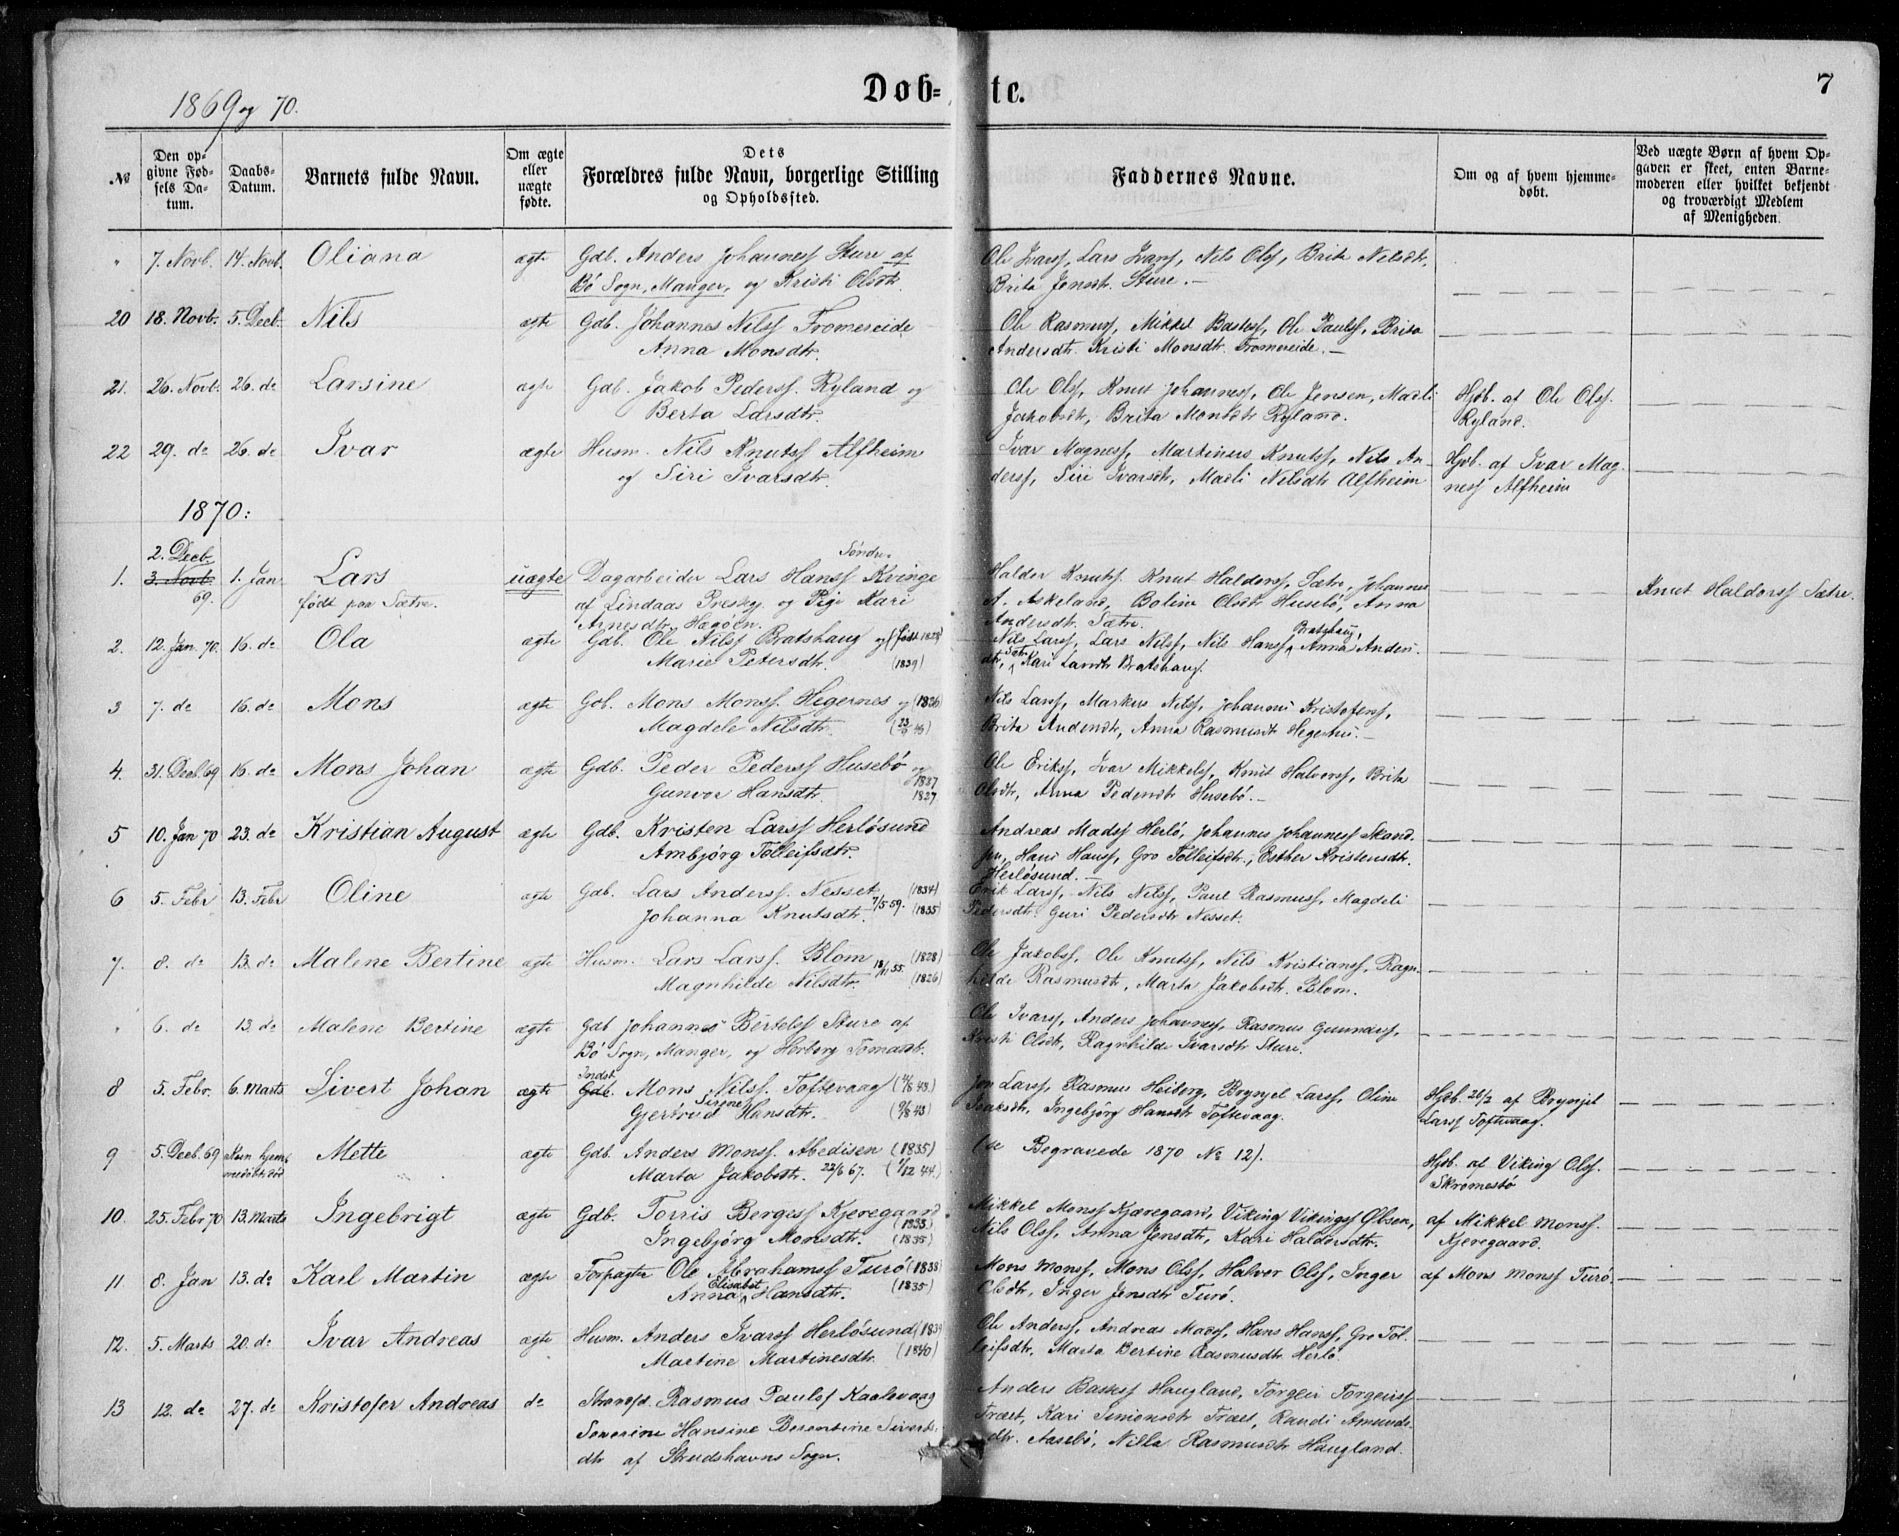 1869 og 70.
Døb-te.
7
№
Den opgivne Fødsels Datum.
Daabs-Datum.
Barnets fulde Navn.
Om ægte eller uægte fødte.
Dets Forældres fulde Navn, borgerlige Stilling og Opholdssted.
Faddernes Navne.
Om og af hvem hjemmedøbt.
Ved uægte Børn af hvem Opgaven er skeet, enten Barnemoderen eller hvilket bekjendt og troværdigt Medlem af Menigheden.
" 7. Novb. 14. Novb. Oliana ægte Gdb. Anders Johannesf Sture af
Bø Sogn, Manger, og Kristi Olsdtr.
Ole Ivarsf, Lars Ivarsf, Nils Olsf, Brita Nilsdtr,
Brita Jonsdtr. Sture.—
20 18. Novb. 5. Decb. Nils ægte Gdb. Johannes Nilsf Fromereide
Anna Monsdtr.
Ole Rasmusf, Mikkel Bastesf, Ole Paulsf, Brita
Andersdtr. Kristi Monsdtr. Fromereide.—
21. 26. Novb. 26. do Larsine ægte Gdb. Jakob Pedersf. Ryland og
Berta Larsdtr.
Ole Olsf, Knut Johannesf, Ole Jensen, Madli
Jakobsdtr, Brita Monsdtr Ryland.
Hjdb. af Ole Olsf.
Ryland.
22 29. do 26. do Ivar ægte Husm. Nils Knutsf Alfheim
og Siri Ivarsdtr.
Ivar Magnesf, Martinus Knutsf, Nils An-
dersf, Siri Ivarsdtr, Madli Nilsdtr Alfheim
Hjdb. af Ivar Mag-
nesf Alfheim
1870:
2. Decb.
1. 3. Novb. 69. 1. Jan Lars uægte Dagarbeider Lars Hansf Søndre Kvinge
født paa Sætre.
af Lindaas Prestgj. og Pige Kari
Arnesdtr Hagöen.
Haldor Knutsf. Knut Haldorsf, Sætre, Johannes
A. Askeland, Boline Olsdtr Husebø, Anna
Andersdtr. Sætre.
Knut Haldorsf Sætre.
2. 12. Jan. 70. 16. do Ola ægte Gdb. Ole Nilsf Bratshaug og (født 1828)
Marie Petersdtr. (1839)
Nils Larsf, Lars Nilsf, Nils Hansf Bratshaug, Anna Anders-
dtr, Sætr. Kari Larsdtr Bratshaug.
3 7. do 16. do Mons ægte Gdb. Mons Monsf. Hegernes og (1826)
Magdele Nilsdtr.
Nils Larsf, Markus Nilsf, Johannes Kristofersf,
Brita Andersdtr, Anna Rasmusdtr Hegernes.—
4. 31. Decb. 69 16. do Mons Johan ægte Gdb. Peder Pedersf Husebø og 1827
Gunvor Hansdtr. 1827
Ole Eriksf, Ivar Mikkelsf, Knut Halvorsf, Brita
Olsdtr, Anna Pedersdtr Husebø.—
5 10. Jan 70 23. do Kristian August ægte Gdb. Kristen Larsf Herløsund
Ambjørg Tolleifsdtr.
Andreas Madsf Herlø, Johannes Johannesf Skand-
jen, Hans Hansf, Gro Tolleifsdtr, Esther Kristensdtr.
Herløsund.—
6 5. Febr 13. Febr Oline ægte Gdb. Lars Andersf. Nesset (1834)
Johanna Knutsdtr. 7/5 59. (1835)
Erik Larsf, Nils Nilsf, Paul Rasmusf, Magdeli
Pedersdtr. Guri Pedersdtr Nesset.
7. 8. do 13. do Malene Bertine ægte Husm. Lars Larsf. Blom (1828)
Magnhilde Nilsdtr. 18/11 55. (1826)
Ole Jakobsf, Ole Knutsf, Nils Kristiansf, Ragn-
hilde Rasmusdtr, Marta Jakobsdtr. Blom.
" 6. do 13. do Malene Bertine ægte Gdb Johannes Bertelsf Sture af
Bø Sogn, Manger, og Herborg Tomasdtr.
Ole Ivarsf, Anders Johannesf, Rasmus Gunnarsf,
Kristi Olsdtr, Ragnhilde Ivarsdtr Sture.
8 5. Febr. 6. Marts Sivert Johan ægte Indst. Gdb. Mons Nilsf. Toftevaag
Gjertrud Sirene Hansdtr.
Jon Larsf, Rasmus Heiberg, Brynjel Larsf, Oline
Ivarsdtr, Ingebjørg Hansdtr Toftevaag.
Hjdb. 26/2 af Brynjel
Larsf Toftevaag.
9 5. Decb. 69 Kun hjem-
medøbt, død Mette ægte Gdb. Anders Monsf. Abedisen (1835)
Marta Jakobsdtr. 22/6 67. (1/12 44.)
(se Begravede 1870 № 12).
Hjdb. af Viking Olsf.
Skrømestø
10. 25. Febr 70 13. Marts Ingebrigt ægte Gdb. Torris Bergesf Kjeregaard (1833)
Ingebjørg Monsdtr. (1835)
Mikkel Monsf Kjæregaard, Viking Vikingsf Øksen,
Nils Olsf, Anna Jensdtr, Kari Haldorsdtr.
af Mikkel Monsf.
Kjeregaard.
11. 8. Jan 13. do Karl Martin ægte Forpagter Ole Abrahamsf Turø (1838)
Anna Elisabet Hansdtr. (1835)
Mons Monsf, Mons Olsf, Halvor Olsf, Inger
Olsdtr, Inger Jensdtr Turø.
af Mons Monsf Turø.
12. 5. Marts 20. do Ivar Andreas ægte Husm. Anders Ivarsf Herløsund (1839
Martine Martinesdtr (1840)
Ole Andersf, Andreas Madsf, Hans Hansf, Gro Tol-
leifsdtr, Marta Bertine Rasmusdtr Herlø.
13 12. do 27. do Kristofer Andreas do Strandsd. Rasmus Paulsf Kaalevaag
Severine Hansine Berentine Siverts-
dtr af Skudshavns Sogn.
Anders Bastesf Haugland, Torgeir Torgeirsf
Træet, Kari Simonsdtr Træet, Randi Amunds-
dtr. Aasebø, Nilla Rasmusdtr Haugland.